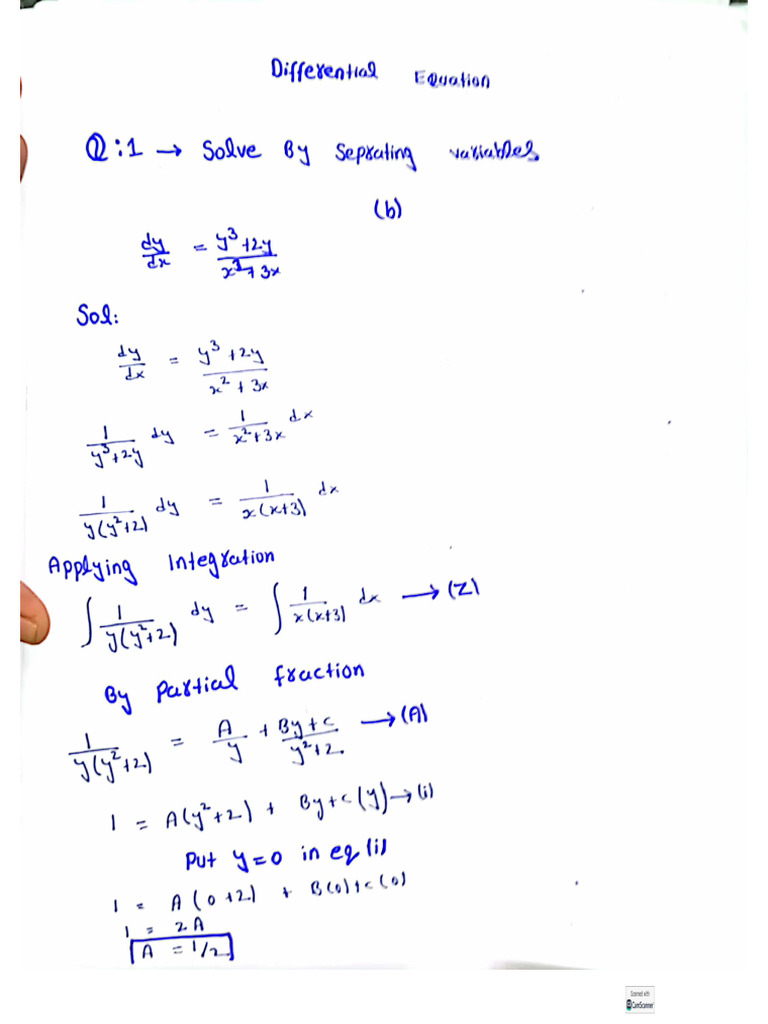 Differential Equation
Q:1 → Solve By Seprating variables
(b)
dy/dx = y³+2y / x²+3x
Sol:
dy/dx = y³+2y / x²+3x
1/y³+2y dy = 1/x²+3x dx
1/y(y²+2) dy = 1/x(x+3) dx
Applying Integration
∫ 1/y(y²+2) dy = ∫ 1/x(x+3) dx → (Z)
By Partial fraction
1/y(y²+2) = A/y + By+c/y²+2 → (A)
1 = A(y²+2) + By+c(y) → (i)
Put y=0 in eq (i)
1 = A(0+2) + B(0)+c(0)
1 = 2A
A = 1/2
Scanned with
CamScanner